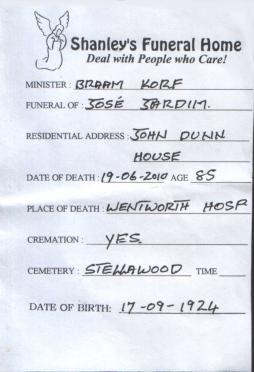 Shanley's Funeral Home
Deal with People who Care!
MINISTER : BRAAM KORF
FUNERAL OF : JOSÉ JARDIM.
RESIDENTIAL ADDRESS : JOHN DUNN
HOUSE
DATE OF DEATH : 19-06-2010 AGE 85
PLACE OF DEATH : WENTWORTH HOSP
CREMATION : YES
CEMETERY : STELLAWOOD TIME
DATE OF BIRTH: 17-09-1924